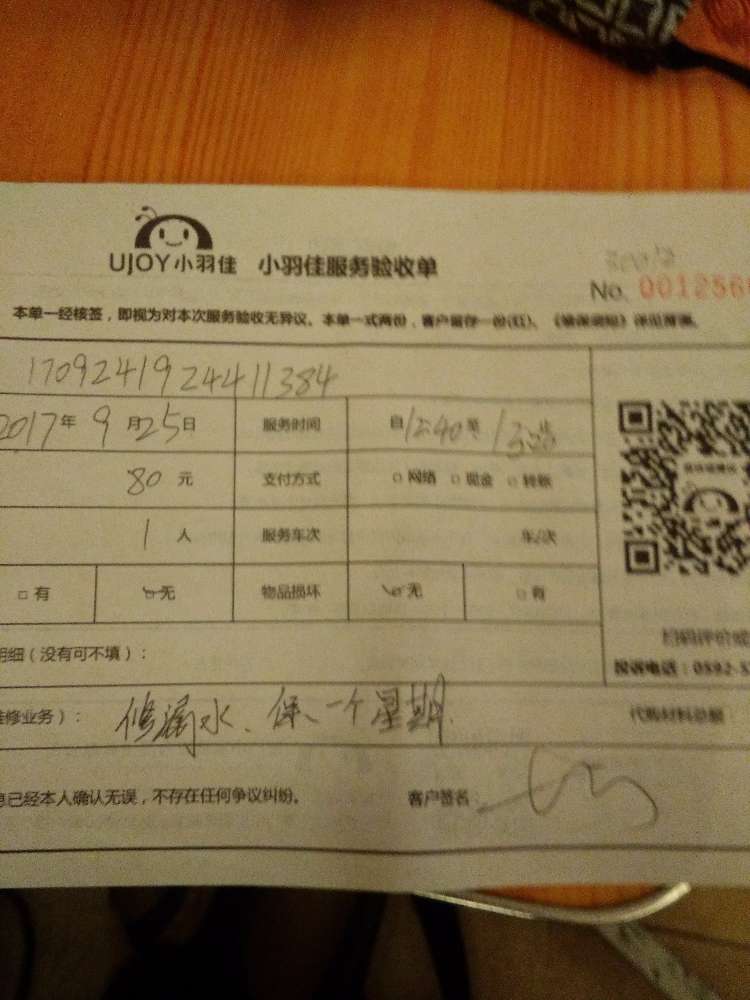 UJOY小羽佳 小羽佳服务验收单
No. 0012566
本单一经核签，即视为对本次服务验收无异议。本单一式两份，客户留存一份(红)。
1709241924411384
2017年 9 月 25 日 服务时间 自 12:40 至
80 元 支付方式 □ 网络 □ 现金 □ 转账
1 人 服务车次 车/次
□ 有 □ 无 物品损坏 □ 无 □ 有
扫码评价
明细（没有可不填）：
投诉电话：0592-5
维修业务）： 修漏水、保一个星期 代购材料总额
息已经本人确认无误，不存在任何争议纠纷。 客户签名：